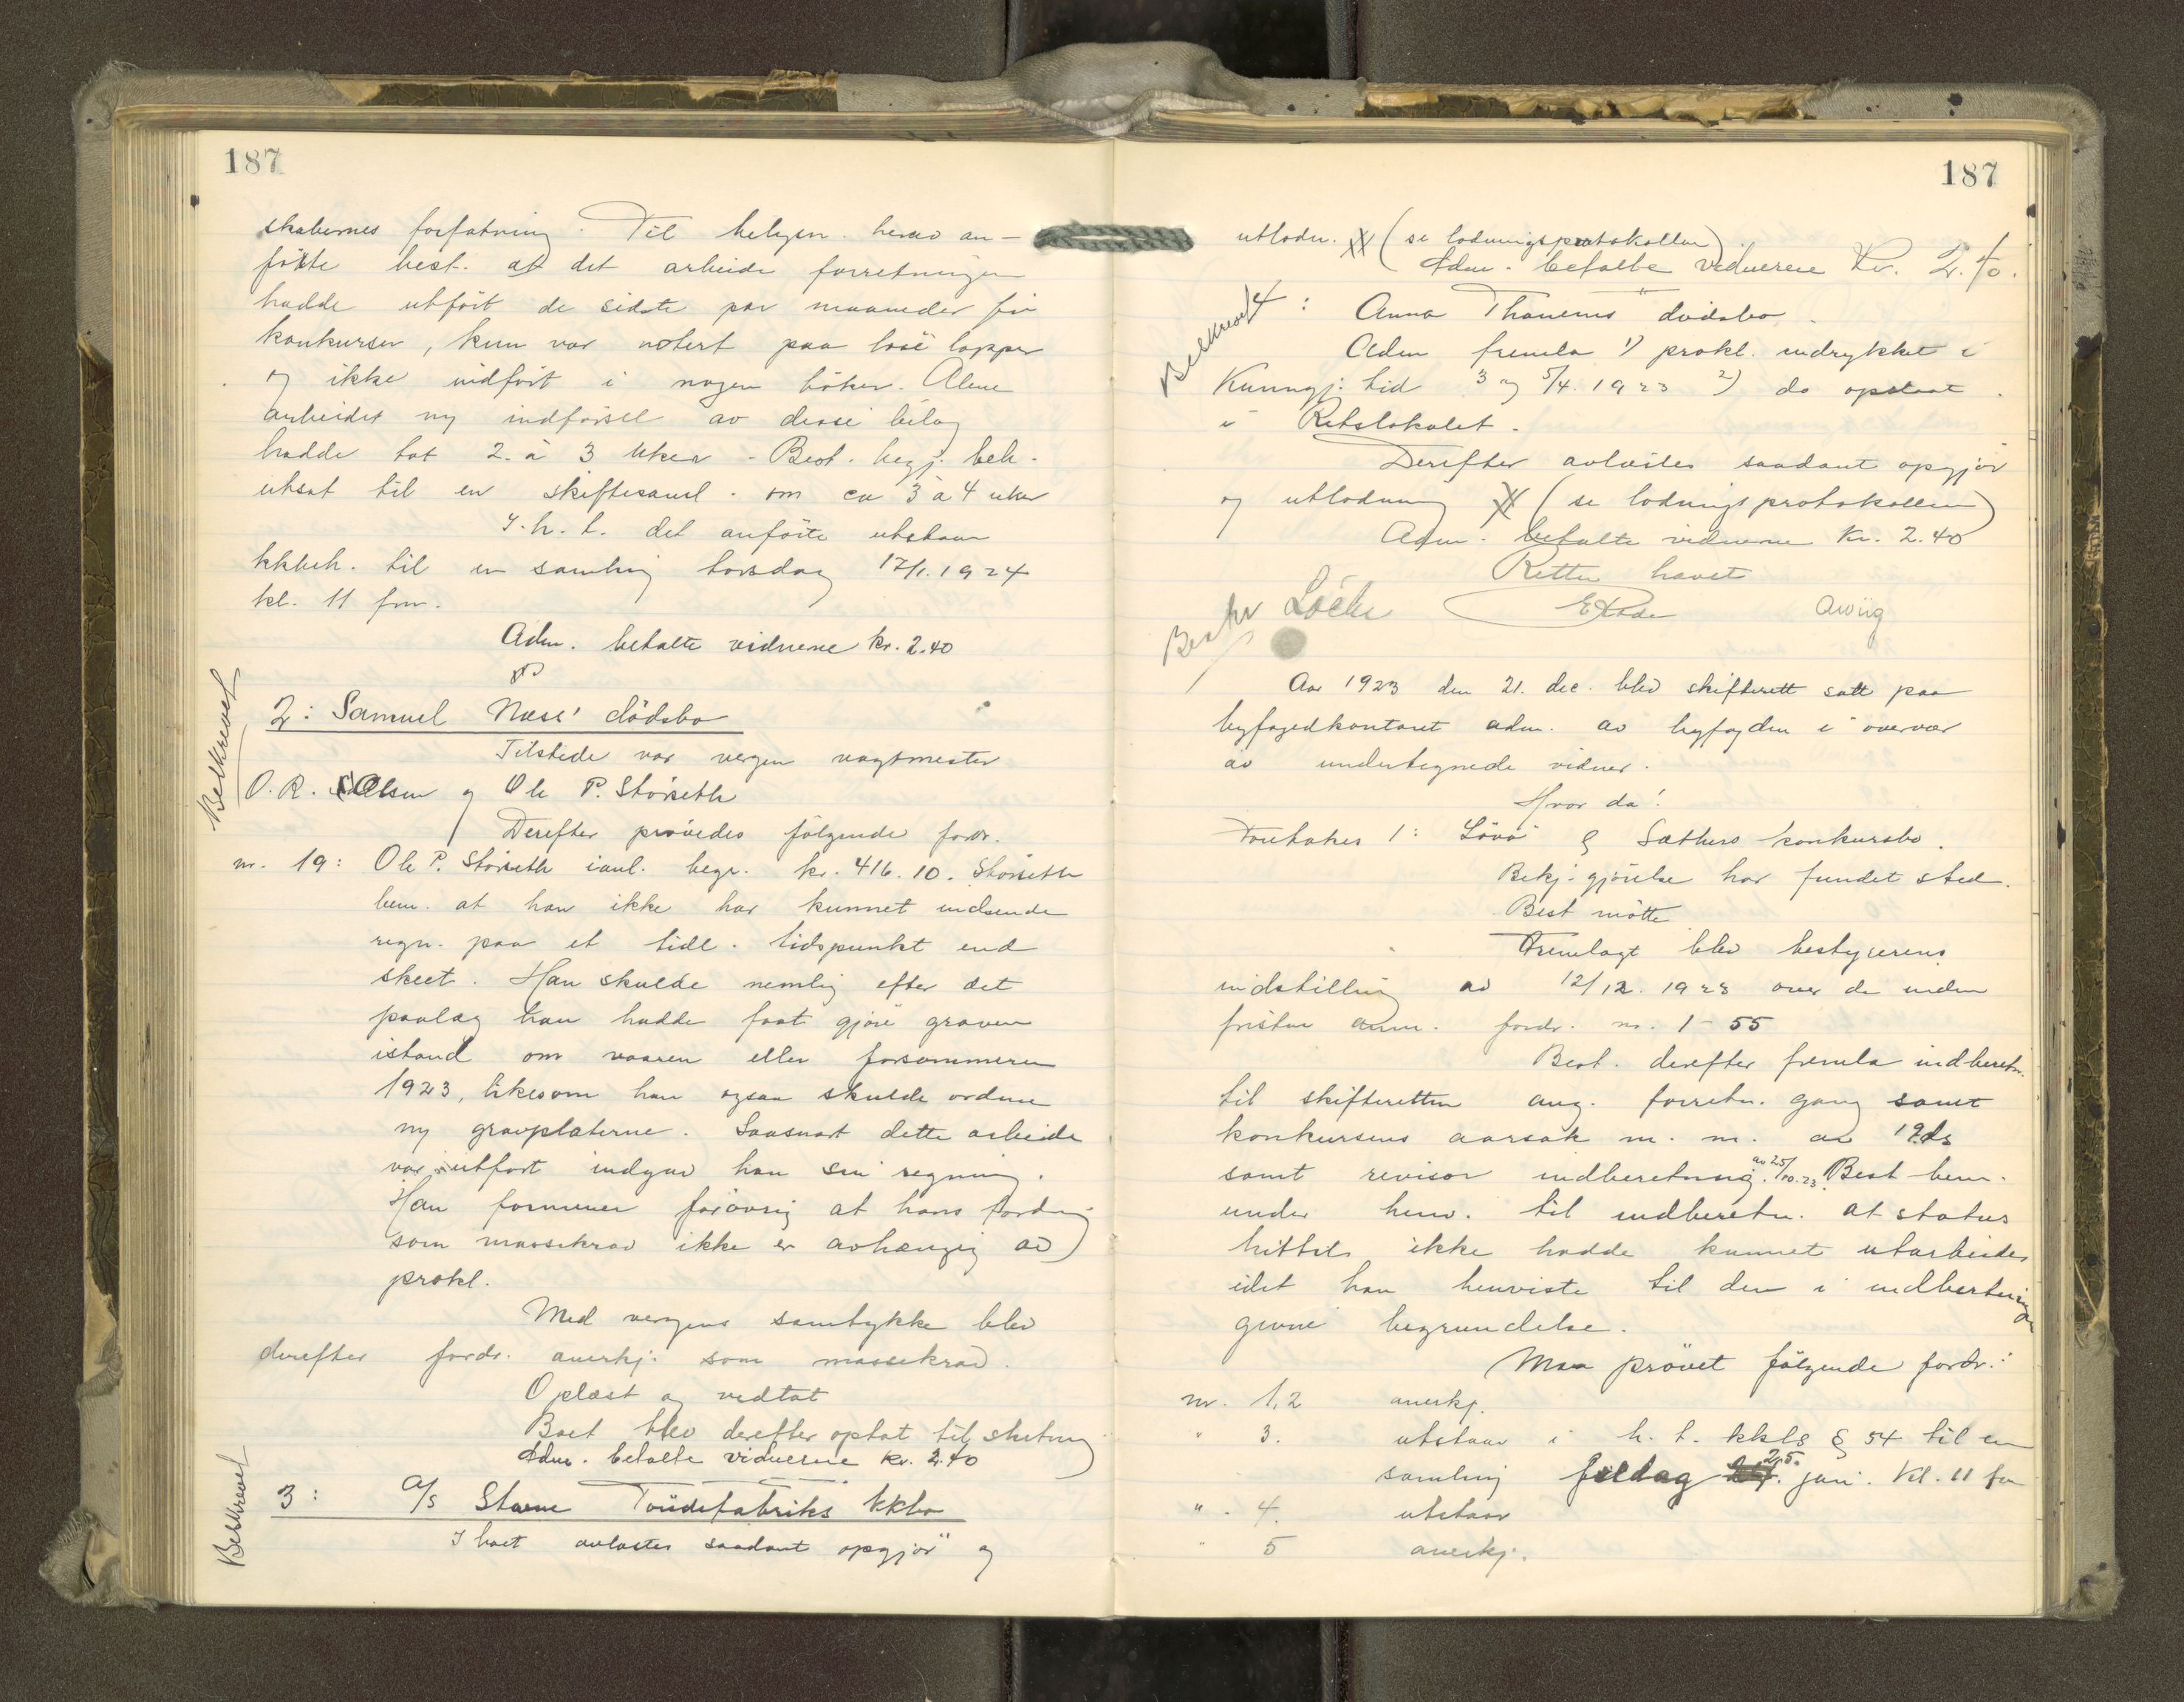 187
skabernes forfatning. Til belysn. herav an-
förte best. at det arbeide forretningen
hadde utfört de sidste par maaneder för
konkursen, kun var notert paa löse lapper
og ikke indfört i nogen böker. Alene
arbeidet m indförsel av disse bilag
hadde tat 2 à 3 uker. Best. begj. beh.
utsat til en skiftesaml. om ca 3 à 4 uker
I. h. t. det anförte utstaar
kkbeh. til en samling torsdag 17/1. 1924
kl. 11 fm.
Adm. betalte vidnerne kr. 2.40
Beskrevet
2: Samuel Næss' dödsbo
Tilstede var vergen vagtmester
O. R. Olsen og Ole P. Störseth
Derefter prövedes fölgende fordr.
nr. 19: Ole P. Störseth ianl. begr. kr. 416.10. Störseth
bem. at han ikke har kunnet indsende
regn. paa et tidl. tidspunkt end
skeet. Han skulde nemlig efter det
paalæg han hadde faat gjöre graven
istand om vaaren eller forsommeren
1923, likesom han ogsaa skulde ordne
m gravplaterne. Saasnart dette arbeide
var utfört indgav han sin regning.
Han formener forövrig at hans fordring
som massekrav ikke er avhængig av
prokl.
Med vergens samtykke blev
derefter fordr. anerkj. som massekrav.
Oplæst og vedtat
Boet blev derefter optat til slutning
Adm. betalte vidnerne kr. 2.40
Beskrevet
3: A/S Stavne Töndefabriks kkbo
I boet avlastes saadant opgjör og
187
utlodn. (se lodningsprotokollen).
Adm. betalte vidnerne Kr. 2.40.
Beskrevet
4: Anna Thanems dödsbo.
Adm fremla 1) prokl. indrykket i
Kunngj. tid 3 og 5/4. 1923 2) do opslaat
i Retslokalet.
Derefter avlastes saadant opgjör
og utlodning (se lodningsprotokollen)
Adm. betalte vidnerne Kr. 2.40
Retten hævet
Beskr
Aar 1923 den 21. dec. blev skifterett satt paa
byfogedkontoret adm. av byfogden i overvær
av undertegnede vidner.
Hvor da:
Foretokes 1: Lövö & Sæthers konkursbo.
Bekj. gjörelse har fundet sted.
Best mötte
Fremlagt blev bestyrerens
indstilling av 12/12. 1923 over de inden
fristen anm. fordr. nr. 1-55
Best. derefter fremla indberetn.
til skifteretten ang. forretn. gang samt
konkursens aarsak m. m. av 19 ds
samt revisor indberetning av 25/10.23. Best bem.
under henv. til indberetn. at status
hittil ikke hadde kunnet utarbeides
idet han henviste til den i indberetningen
givne begrundelse.
Maa prövet fölgende fordr.:
nr. 1,2 anerkj.
" 3. utstaar i h. t. kkls § 54 til en
samling fredag 25. jan. Kl. 11 fm
" 4. utstaar
" 5 anerkj.